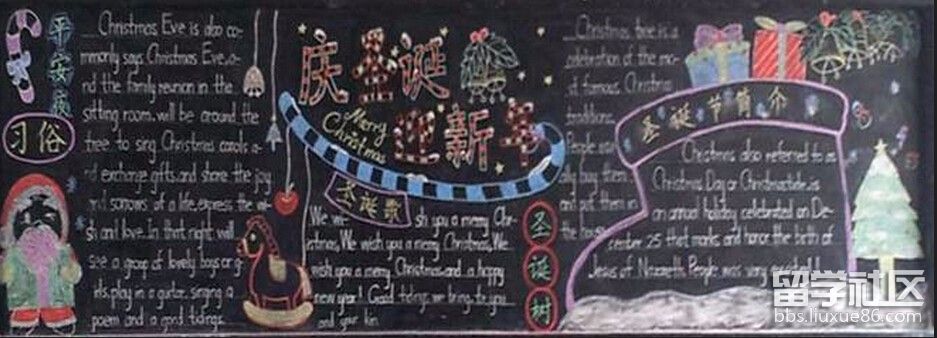 平安夜
习俗
Christmas Eve is also co-
mmonly says Christmas Eve, a-
nd the family reunion in the
sitting room. will be around the
tree to sing Christmas carols a-
nd exchange gifts, and share the joy
and sorrows of a life, express the wi-
sh and love. In that night will
see a group of lovely boys or gi-
rls, play in a guitar, singing a
poem and a good tidings.
庆圣诞
迎新年
Merry
Christmas
圣诞歌
We wi- sh you a merry Chr-
istmas, We wish you a merry Christmas, We
wish you a merry Christmas and a happy
new year! Good tidings we bring, to you
and your kin
圣诞树
Christmas tree is a
celebration of the mo-
st famous Christmas
traditions.
People usu-
ally buy them
and put them in
the house
圣诞节简介
Christmas also referred to as
Christmas Day or Christmastide, is
an annual holiday celebrated on De-
cember 25 that marks and honor the birth of
Jesus of Nazareth. People was very
留学社区
bbs.liuxue86.com